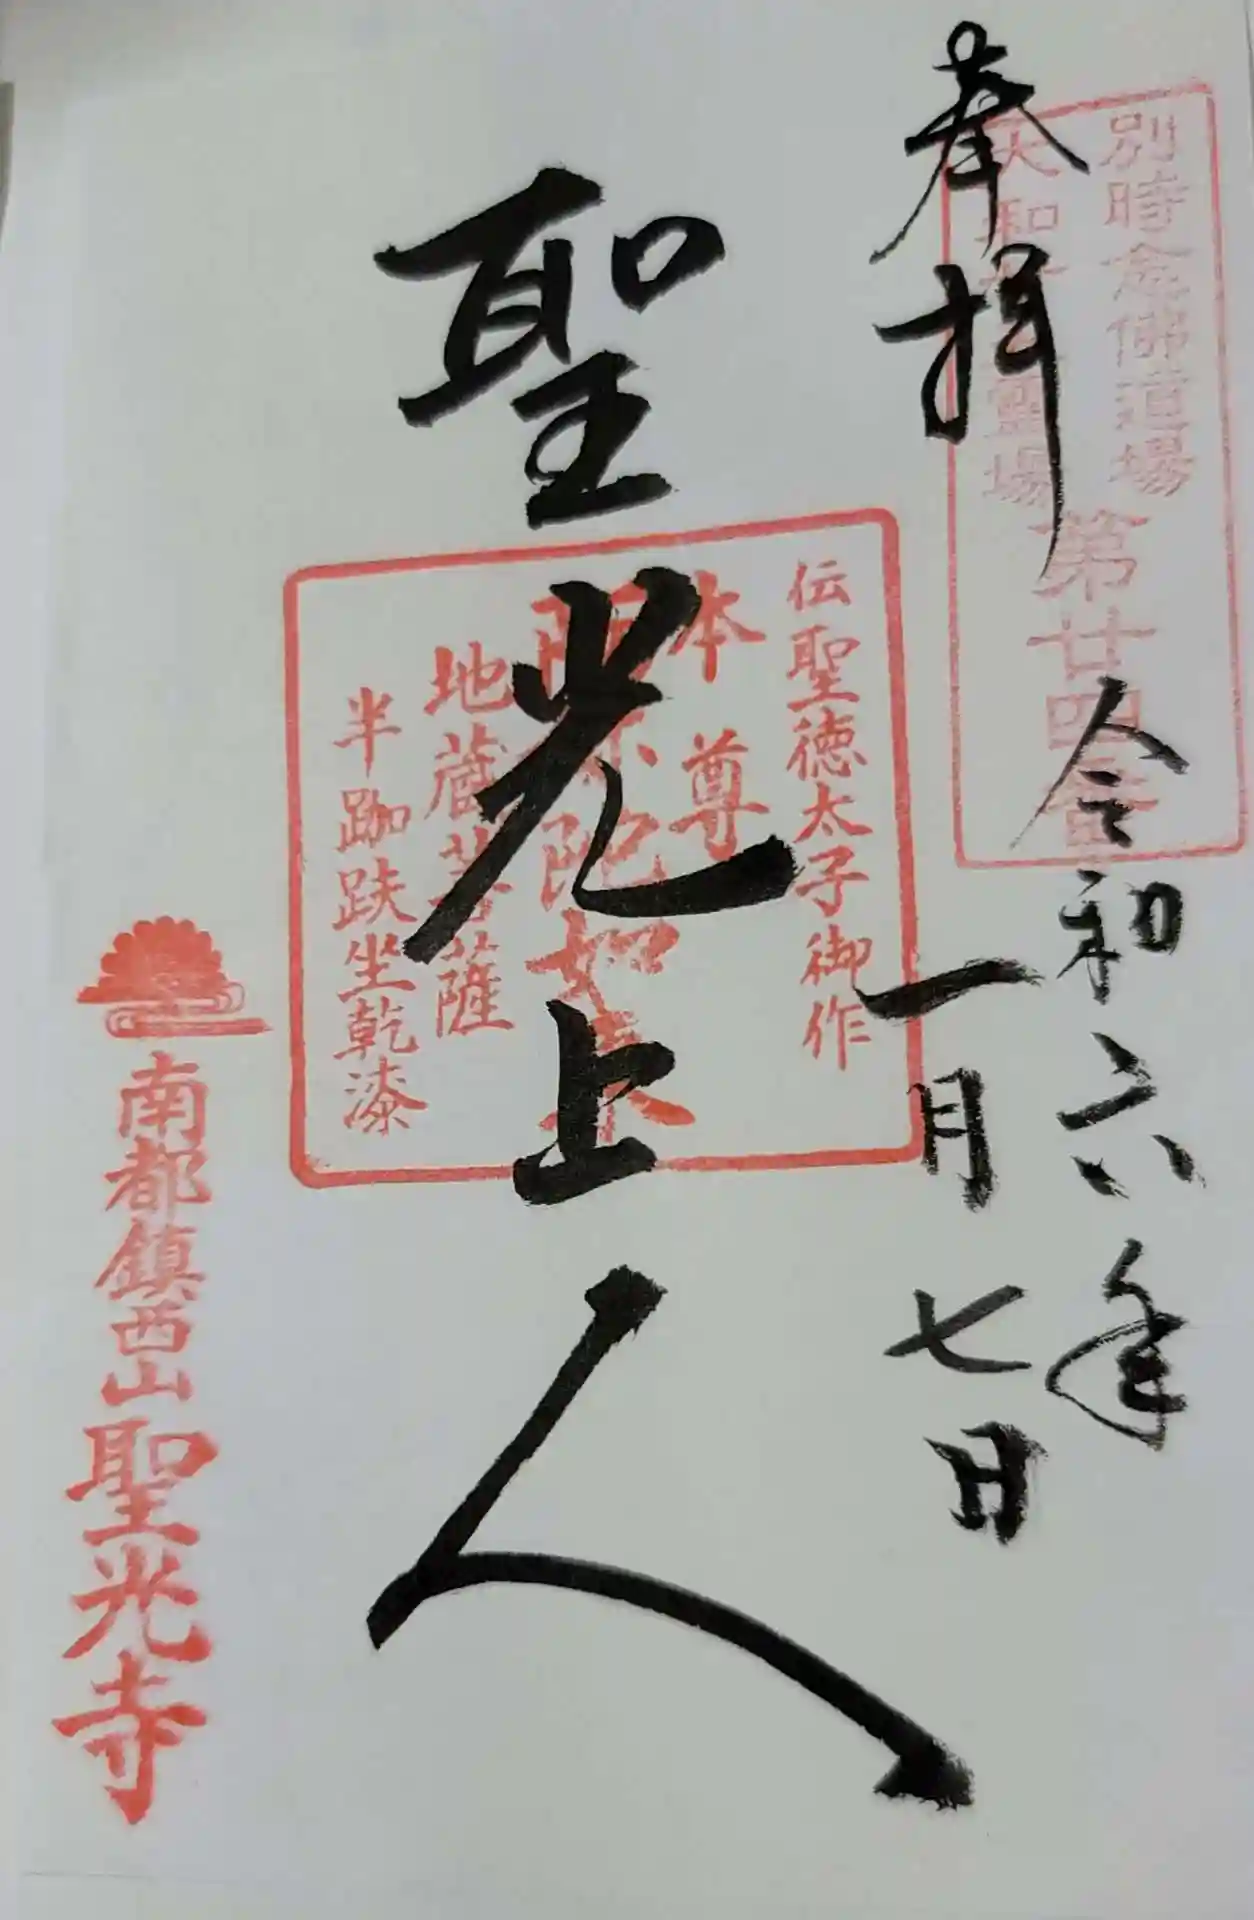 奉拝
別時念佛道場
大和 霊場
第廿四番
令和六年
一月七日
聖光上人
伝聖徳太子御作
本尊
阿弥陀如来
地蔵菩薩
半跏趺坐乾漆
南都鎮西山聖光寺